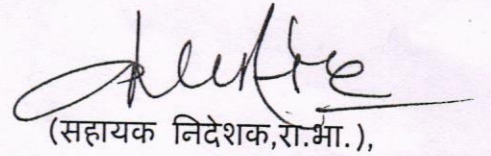 (सहायक निदेशक,रा.भा.),